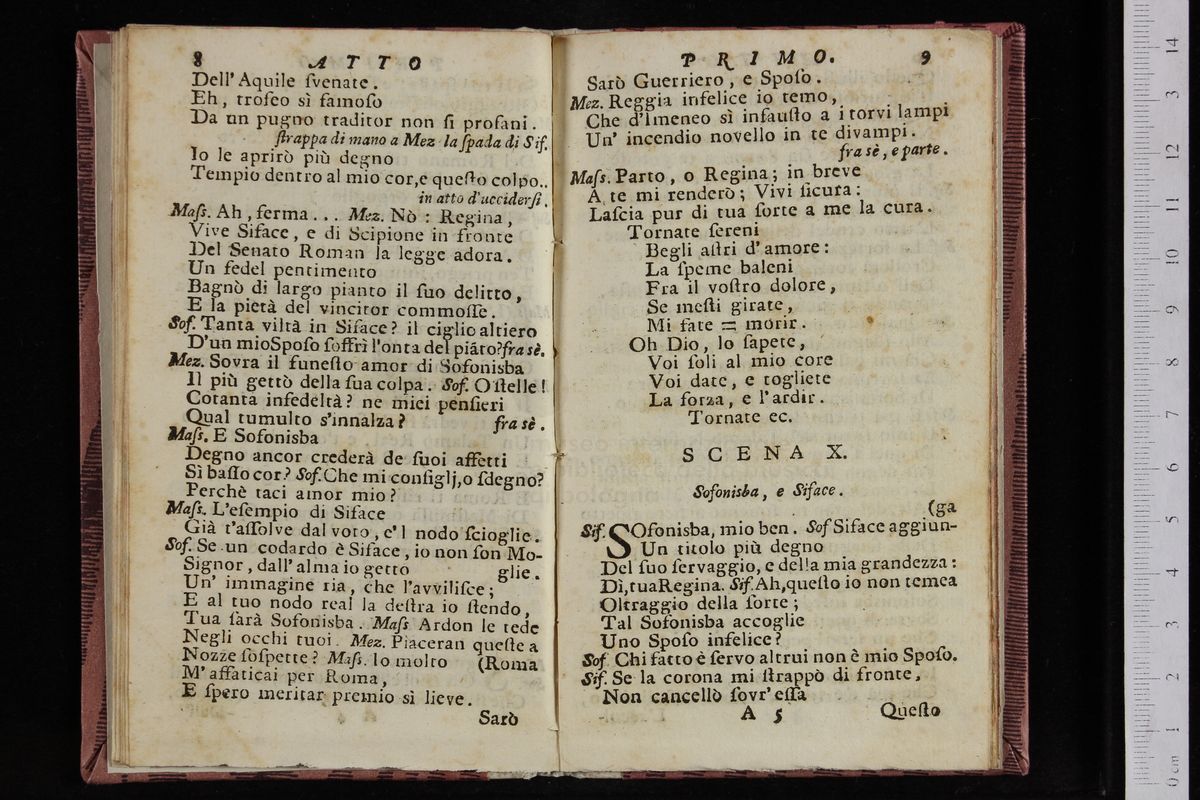 8 ATTO
Dell' Aquile ſvenate.
Eh, trofeo sì famoſo
Da un pugno traditor non ſi profani.
ſtrappa di mano a Mez la ſpada di Sif.
Io le aprirò più degno
Tempio dentro al mio cor,e queſto colpo..
in atto d'ucciderſi.
Maſs. Ah, ferma... Mez. Nò: Regina,
Vive Siface, e di Scipione in fronte
Del Senato Roman la legge adora.
Un fedel pentimento
Bagnò di largo pianto il ſuo delitto,
E la pietà del vincitor commoſſe.
Sof. Tanta viltà in Siface? il ciglio altiero
D'un mioSpoſo ſoffrì l'onta del piãto?fra sè.
Mez. Sovra il funeſto amor di Sofonisba
Il più gettò della ſua colpa. Sof. O ſtelle!
Cotanta infedeltà? ne miei penſieri
Qual tumulto s'innalza? fra sè.
Maſs. E Sofonisba
Degno ancor crederà de ſuoi affetti
Sì baſſo cor? Sof.Che mi conſiglj,o ſdegno?
Perchè taci amor mio?
Maſs. L'eſempio di Siface
Già t'aſſolve dal voto, e'l nodo ſcioglie.
Sof. Se un codardo è Siface, io non ſon Mo-
Signor, dall' alma io getto glie.
Un' immagine ria, che l'avviliſce;
E al tuo nodo real la deſtra io ſtendo,
Tua ſarà Sofonisba. Maſs Ardon le tede
Negli occhi tuoi. Mez. Piaceran queſte a
Nozze ſoſpette? Maſs. Io molto (Roma
M' affaticai per Roma,
E ſpero meritar premio sì lieve.
Sarò
PRIMO. 9
Sarò Guerriero, e Spoſo.
Mez. Reggia infelice io temo,
Che d'Imeneo sì infauſto a i torvi lampi
Un' incendio novello in te divampi.
fra sè, e parte.
Maſs. Parto, o Regina; in breve
A te mi renderò; Vivi ſicura:
Laſcia pur di tua ſorte a me la cura.
Tornate ſereni
Begli aſtri d' amore:
La ſpeme baleni
Fra il voſtro dolore,
Se meſti girate,
Mi fate = morir.
Oh Dio, lo ſapete,
Voi ſoli al mio core
Voi date, e togliete
La forza, e l'ardir.
Tornate ec.
SCENA X.
Sofonisba, e Siface.
(ga
Sif. SOfonisba, mio ben. Sof Siface aggiun-
Un titolo più degno
Del ſuo ſervaggio, e della mia grandezza:
Dì,tuaRegina. Sif.Ah,queſto io non temea
Oltraggio della ſorte;
Tal Sofonisba accoglie
Uno Spoſo infelice?
Sof Chi fatto è ſervo altrui non è mio Spoſo.
Sif. Se la corona mi ſtrappò di fronte,
Non cancellò ſovr' eſſa
A 5 Queſto
14
13
12
11
10
9
8
7
6
5
4
3
2
1
0 cm